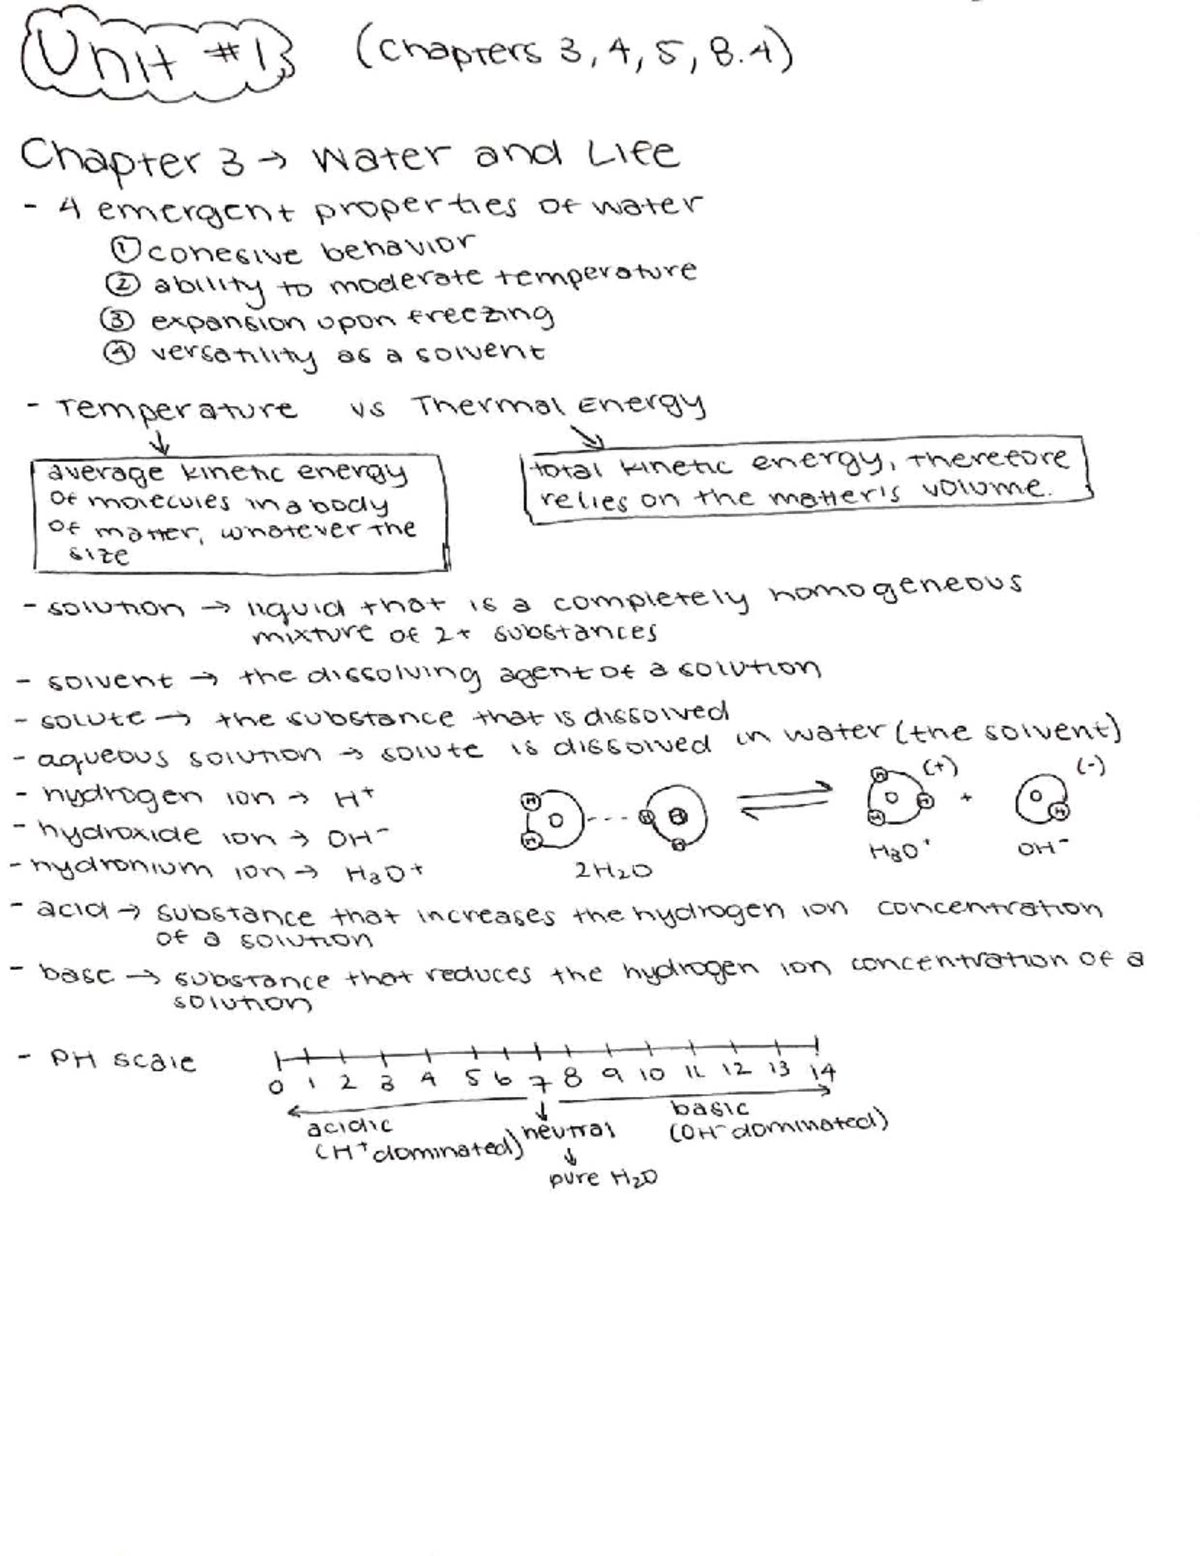 Unit #1 (Chapters 3, 4, 5, 8.4)
Chapter 3 → Water and Life
- 4 emergent properties of water
① cohesive behavior
② ability to moderate temperature
③ expansion upon freezing
④ versatility as a solvent
- Temperature vs Thermal Energy
average kinetic energy
of molecules in a body
of matter, whatever the
size
total kinetic energy, therefore
relies on the matter's volume.
- solution → liquid that is a completely homogeneous
mixture of 2+ substances
- solvent → the dissolving agent of a solution
- solute → the substance that is dissolved
- aqueous solution → solute is dissolved in water (the solvent)
- hydrogen ion → H+
- hydroxide ion → OH-
- hydronium ion → H3O+
H O H ... H H
2H2O
⇌
H O H H (+)
H3O+
+
O H (-)
OH-
- acid → substance that increases the hydrogen ion concentration
of a solution
- base → substance that reduces the hydrogen ion concentration of a
solution
- PH scale
0 1 2 3 4 5 6 7 8 9 10 11 12 13 14
acidic
(H+ dominated)
neutral
pure H2O
basic
(OH- dominated)